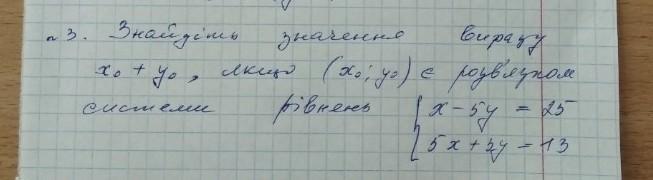 №3. Знайдіть значення виразу
x₀ + y₀, якщо (x₀; y₀) є розв'язком
системи рівнень { x - 5y = 25
5x + 3y = 13